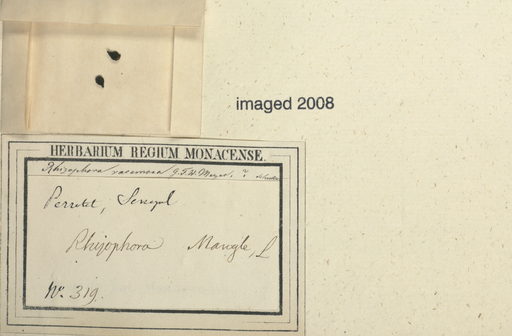 imaged 2008
HERBARIUM REGIUM MONACENSE.
Rhizophora racemosa G.F.W. Meyer
Perrotet, Senegal
Rhizophora Mangle, L
No. 319.